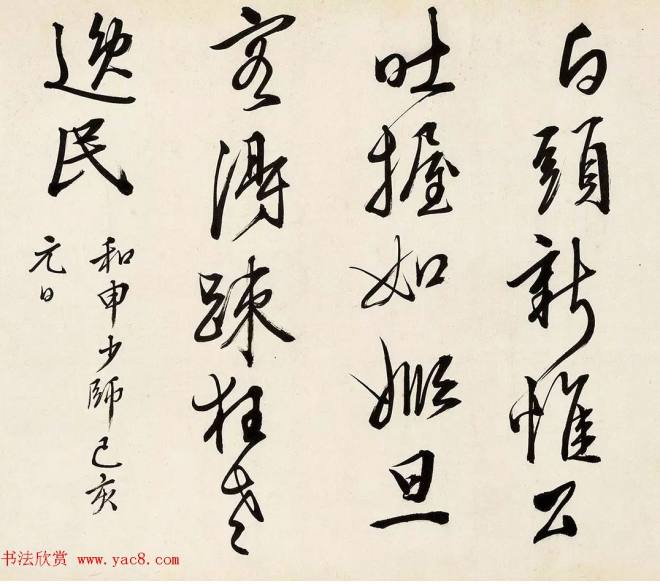 白頭新惟公
吐握如姬旦
容得踈狂老
逸民
和申少師己亥
元日
书法欣赏 www.yac8.com